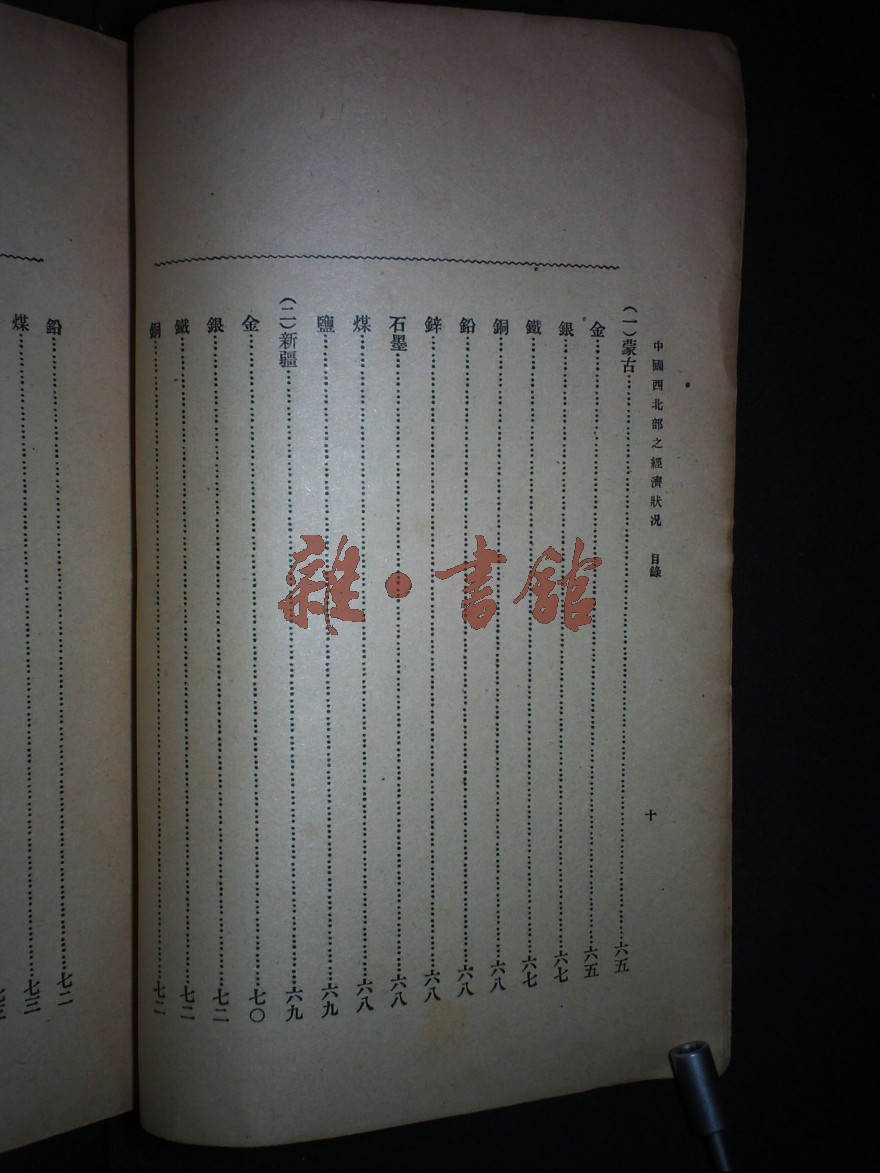 中國西北部之經濟狀况　目錄　十
(一)蒙古……六五
金……六五
銀……六七
鐵……六七
銅……六八
鉛……六八
鋅……六八
石墨……六八
煤……六八
鹽……六九
(二)新疆……六九
金……七〇
銀……七二
鐵……七二
銅……七二
鉛……七二
煤……七三
雜·書館